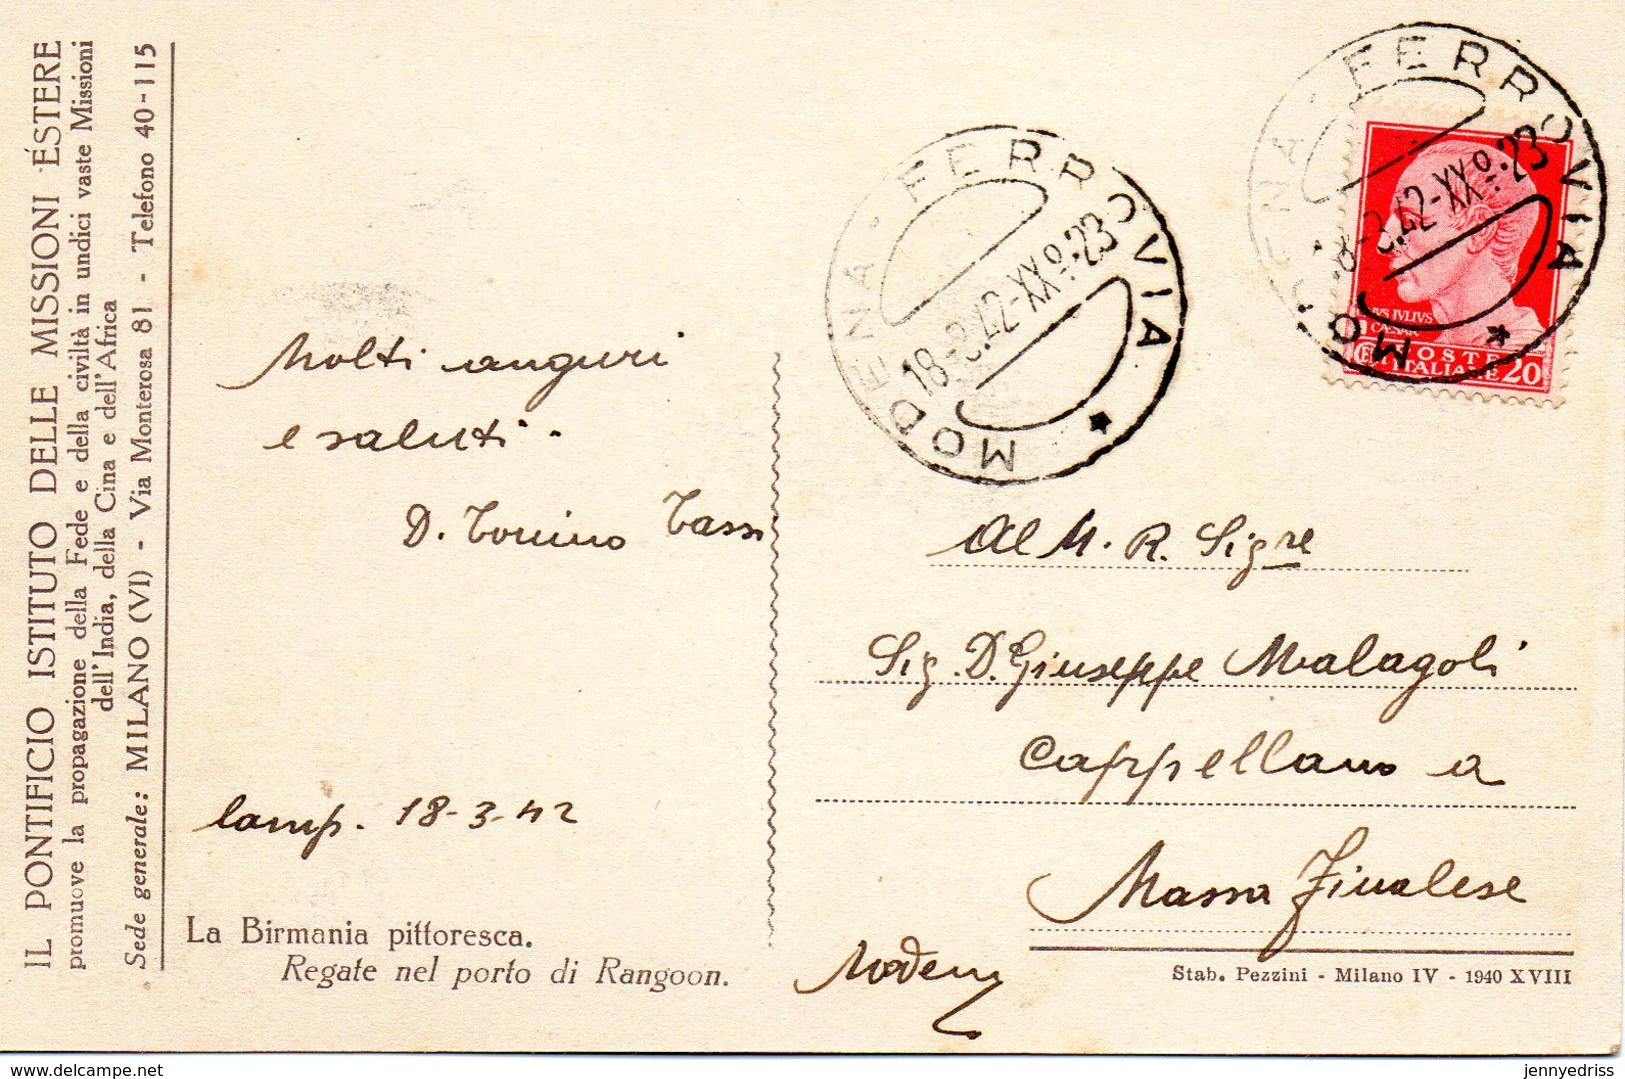 IL PONTIFICIO ISTITUTO DELLE MISSIONI ESTERE
promuove la propagazione della Fede e della civiltà in undici vaste Missioni
dell'India, della Cina e dell'Africa
Sede generale: MILANO (VI) - Via Monterosa 81 - Telefono 40-115
Molti auguri
e saluti.
D. Tonino Tassi
18-3-42
La Birmania pittoresca.
Regate nel porto di Rangoon.
MODENA - FERROVIA
18-3.42-XXº.23
MODENA - FERROVIA
18-3.42-XXº.23
IVS IVLIVS
CAESAR
POSTE
ITALIANE 20
Al M. R. Sigre
Sig. D. Giuseppe Malagoli
Cappellano a
Massa Finalese
Modena
Stab. Pezzini - Milano IV - 1940 XVIII
delcampe.net
jennyedriss